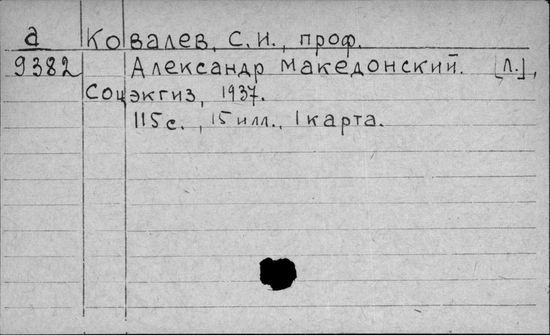 а Ковалев, С.И., проф.
9382 Александр Македонский. [Л.],
Соцэкгиз, 1937.
115 с., 15 илл., 1 карта.